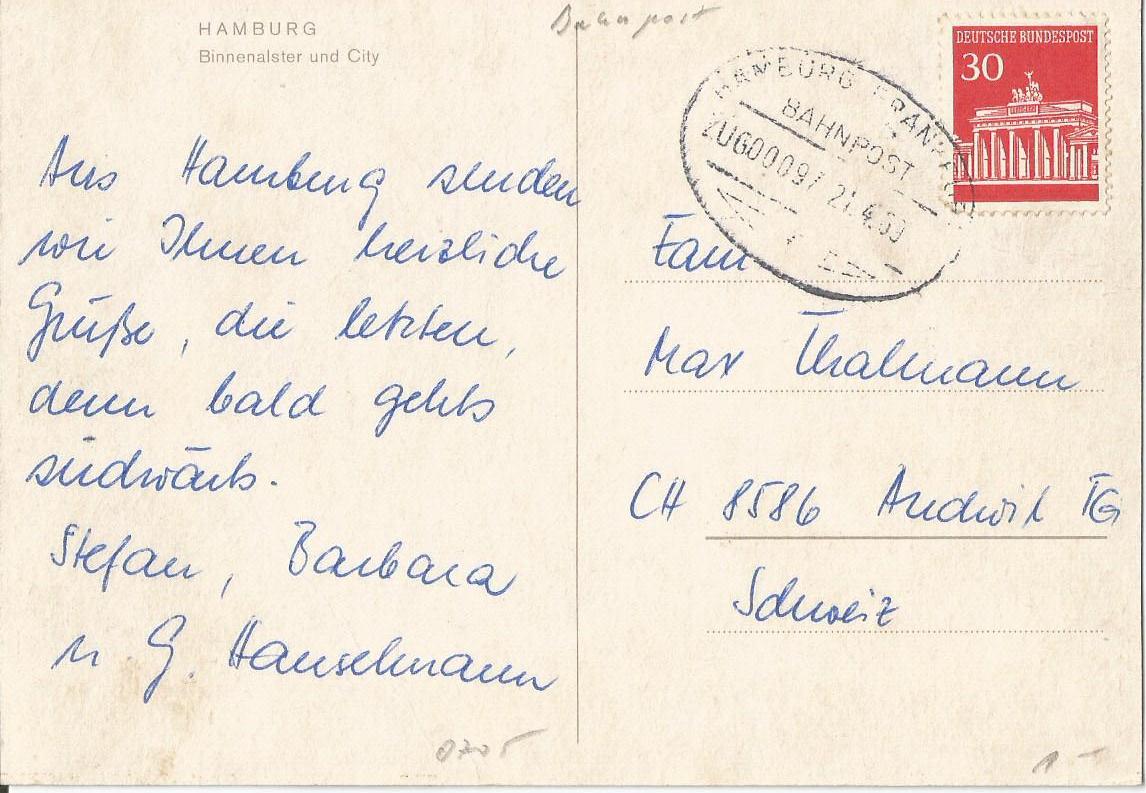 HAMBURG
Binnenalster und City
Bahnpost
Aus Hamburg senden
wir Ihnen herzliche
Grüße, die letzten,
denn bald gehts
südwärts.
Stefan, Barbara
u. G. Hanselmann
DEUTSCHE BUNDESPOST
30
HAMBURG FRANKFURT
BAHNPOST
ZUG00097 21.4.69
Fam
Max Thalmann
CH 8586 Andwil TG
Schweiz
1-